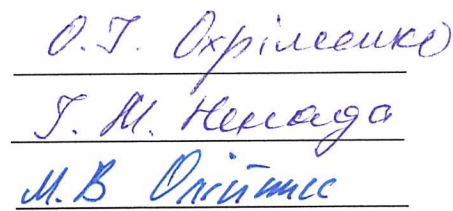 О.Г. Охріменко
Г. М. Ненада
М.В Олійник